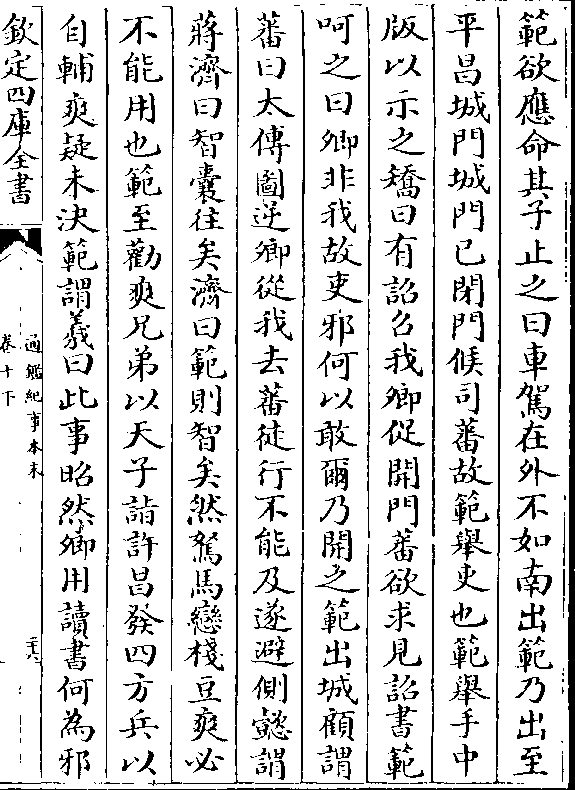 範欲應命其子止之曰車駕在外不如南出範乃出至
平昌城門城門已閉門候司蕃故範舉吏也範舉手中
版以示之矯曰有詔召我卿促開門蕃欲求見詔書範
呵之曰卿非我故吏邪何以敢爾乃開之範出城顧謂
蕃曰太傅圖逆卿從我去蕃徒行不能及遂避側懿謂
蔣濟曰智囊往矣濟曰範則智矣然駑馬戀棧豆爽必
不能用也範至勸爽兄弟以天子詣許昌發四方兵以
自輔爽疑未決範謂羲曰此事昭然卿用讀書何為邪
欽定四庫全書
通鑑紀事本末
卷十下
二六